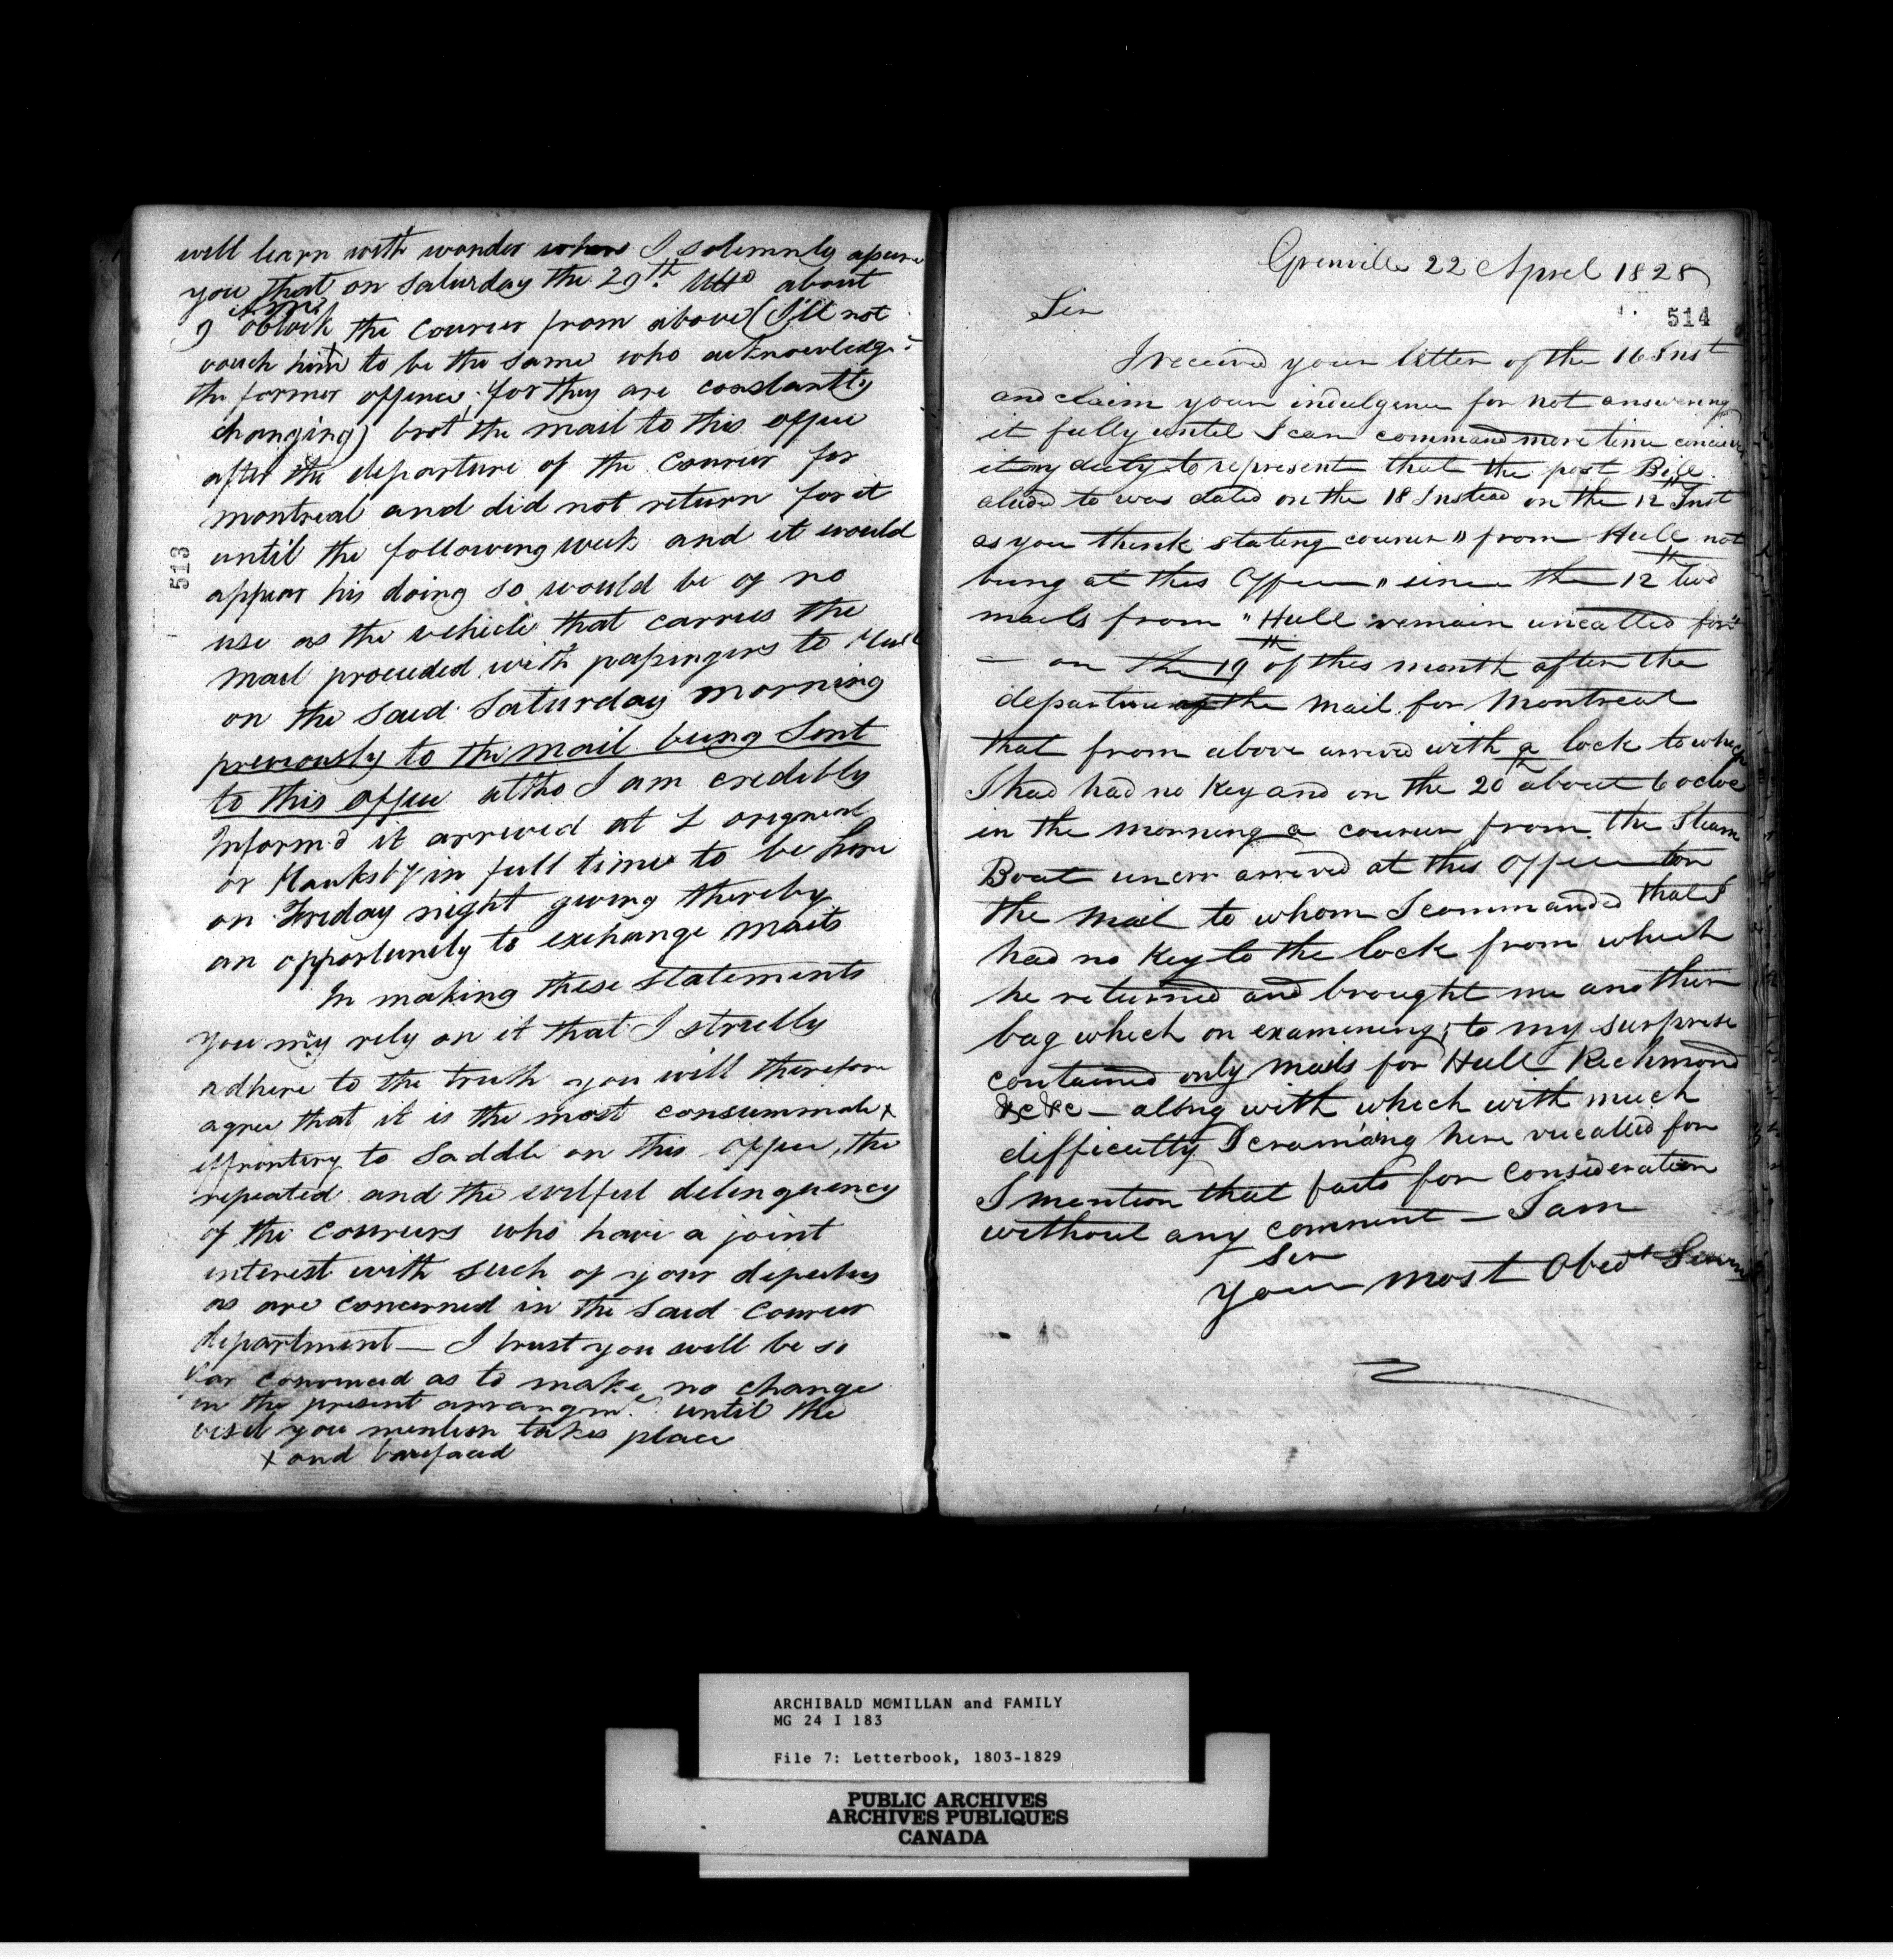 will learn with wonder when I solemnly assure
you that on Saturday the 29th Ulto about
9 oblock the Courier from above (I'll not
vouch him to be the same who acknowledge
the former offence for they are constantly
changing) brot the mail to this office
after the departure of the Courier for
montreal and did not return for it
until the following week and it would
appear his doing so would be of no
use as the vehicle that carries the
mail proceeded with passengers to Hull
on the said Saturday morning
previously to the mail being Sent
to this office altho I am credibly
Inform'd it arrived at L orignial
or Hawksby in full time to be here
on Friday night giving thereby
an opportunity to exchange mails
In making these statements
you my rely on it that I strictly
adhere to the truth you will therefore
agree that it is the most consummate x
effrontery to Saddle on this office, the
repeated and the wilful delinquency
of the Couriers who have a joint
interest with such of your deputies
as are concerned in the said Courier
department — I trust you will be so
far convinced as to make no change
in the present arrangmt until the
visit you mention takes place
x and barefaced
513
Grenville 22 April 1828
514
Sir
I received your letter of the 16 Inst
and claim your indulgence for not answering
it fully until I can command more time
it my duty to represent that the post Bill
alude to was dated on the 18 Instead on the 12th Inst
as you think stating courier " from Hull not
being at this Office " since the 12th two
mails from " Hull remain uncalled for"
— on the 19th of this month after the
departure of the mail for Montreal
that from above arrived with a lock to which
I had had no Key and on the 20th about 6 ocloc
in the morning a courier from the Steam
Boat arrived at this office for
the mail to whom I commanded that I
had no Key to the lock from which
he returned and brought me another
bag which on examining, to my surprise
contained only mails for Hull Richmond
&c &c — along with which with much
difficulty I here for
I mention that facts for consideration
without any comment — I am
Sir
your most Obedt
ARCHIBALD MCMILLAN and FAMILY
MG 24 I 183
File 7: Letterbook, 1803-1829
PUBLIC ARCHIVES
ARCHIVES PUBLIQUES
CANADA